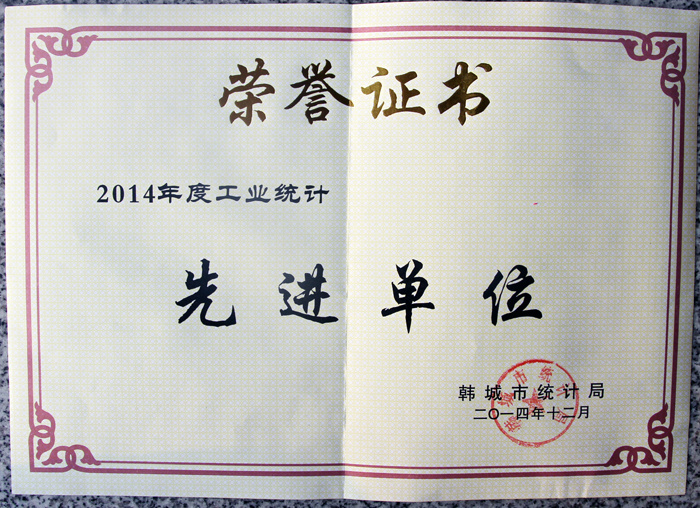 荣誉证书
2014年度工业统计
先进单位
韩城市统计局
二〇一四年十二月
韩城市统计局